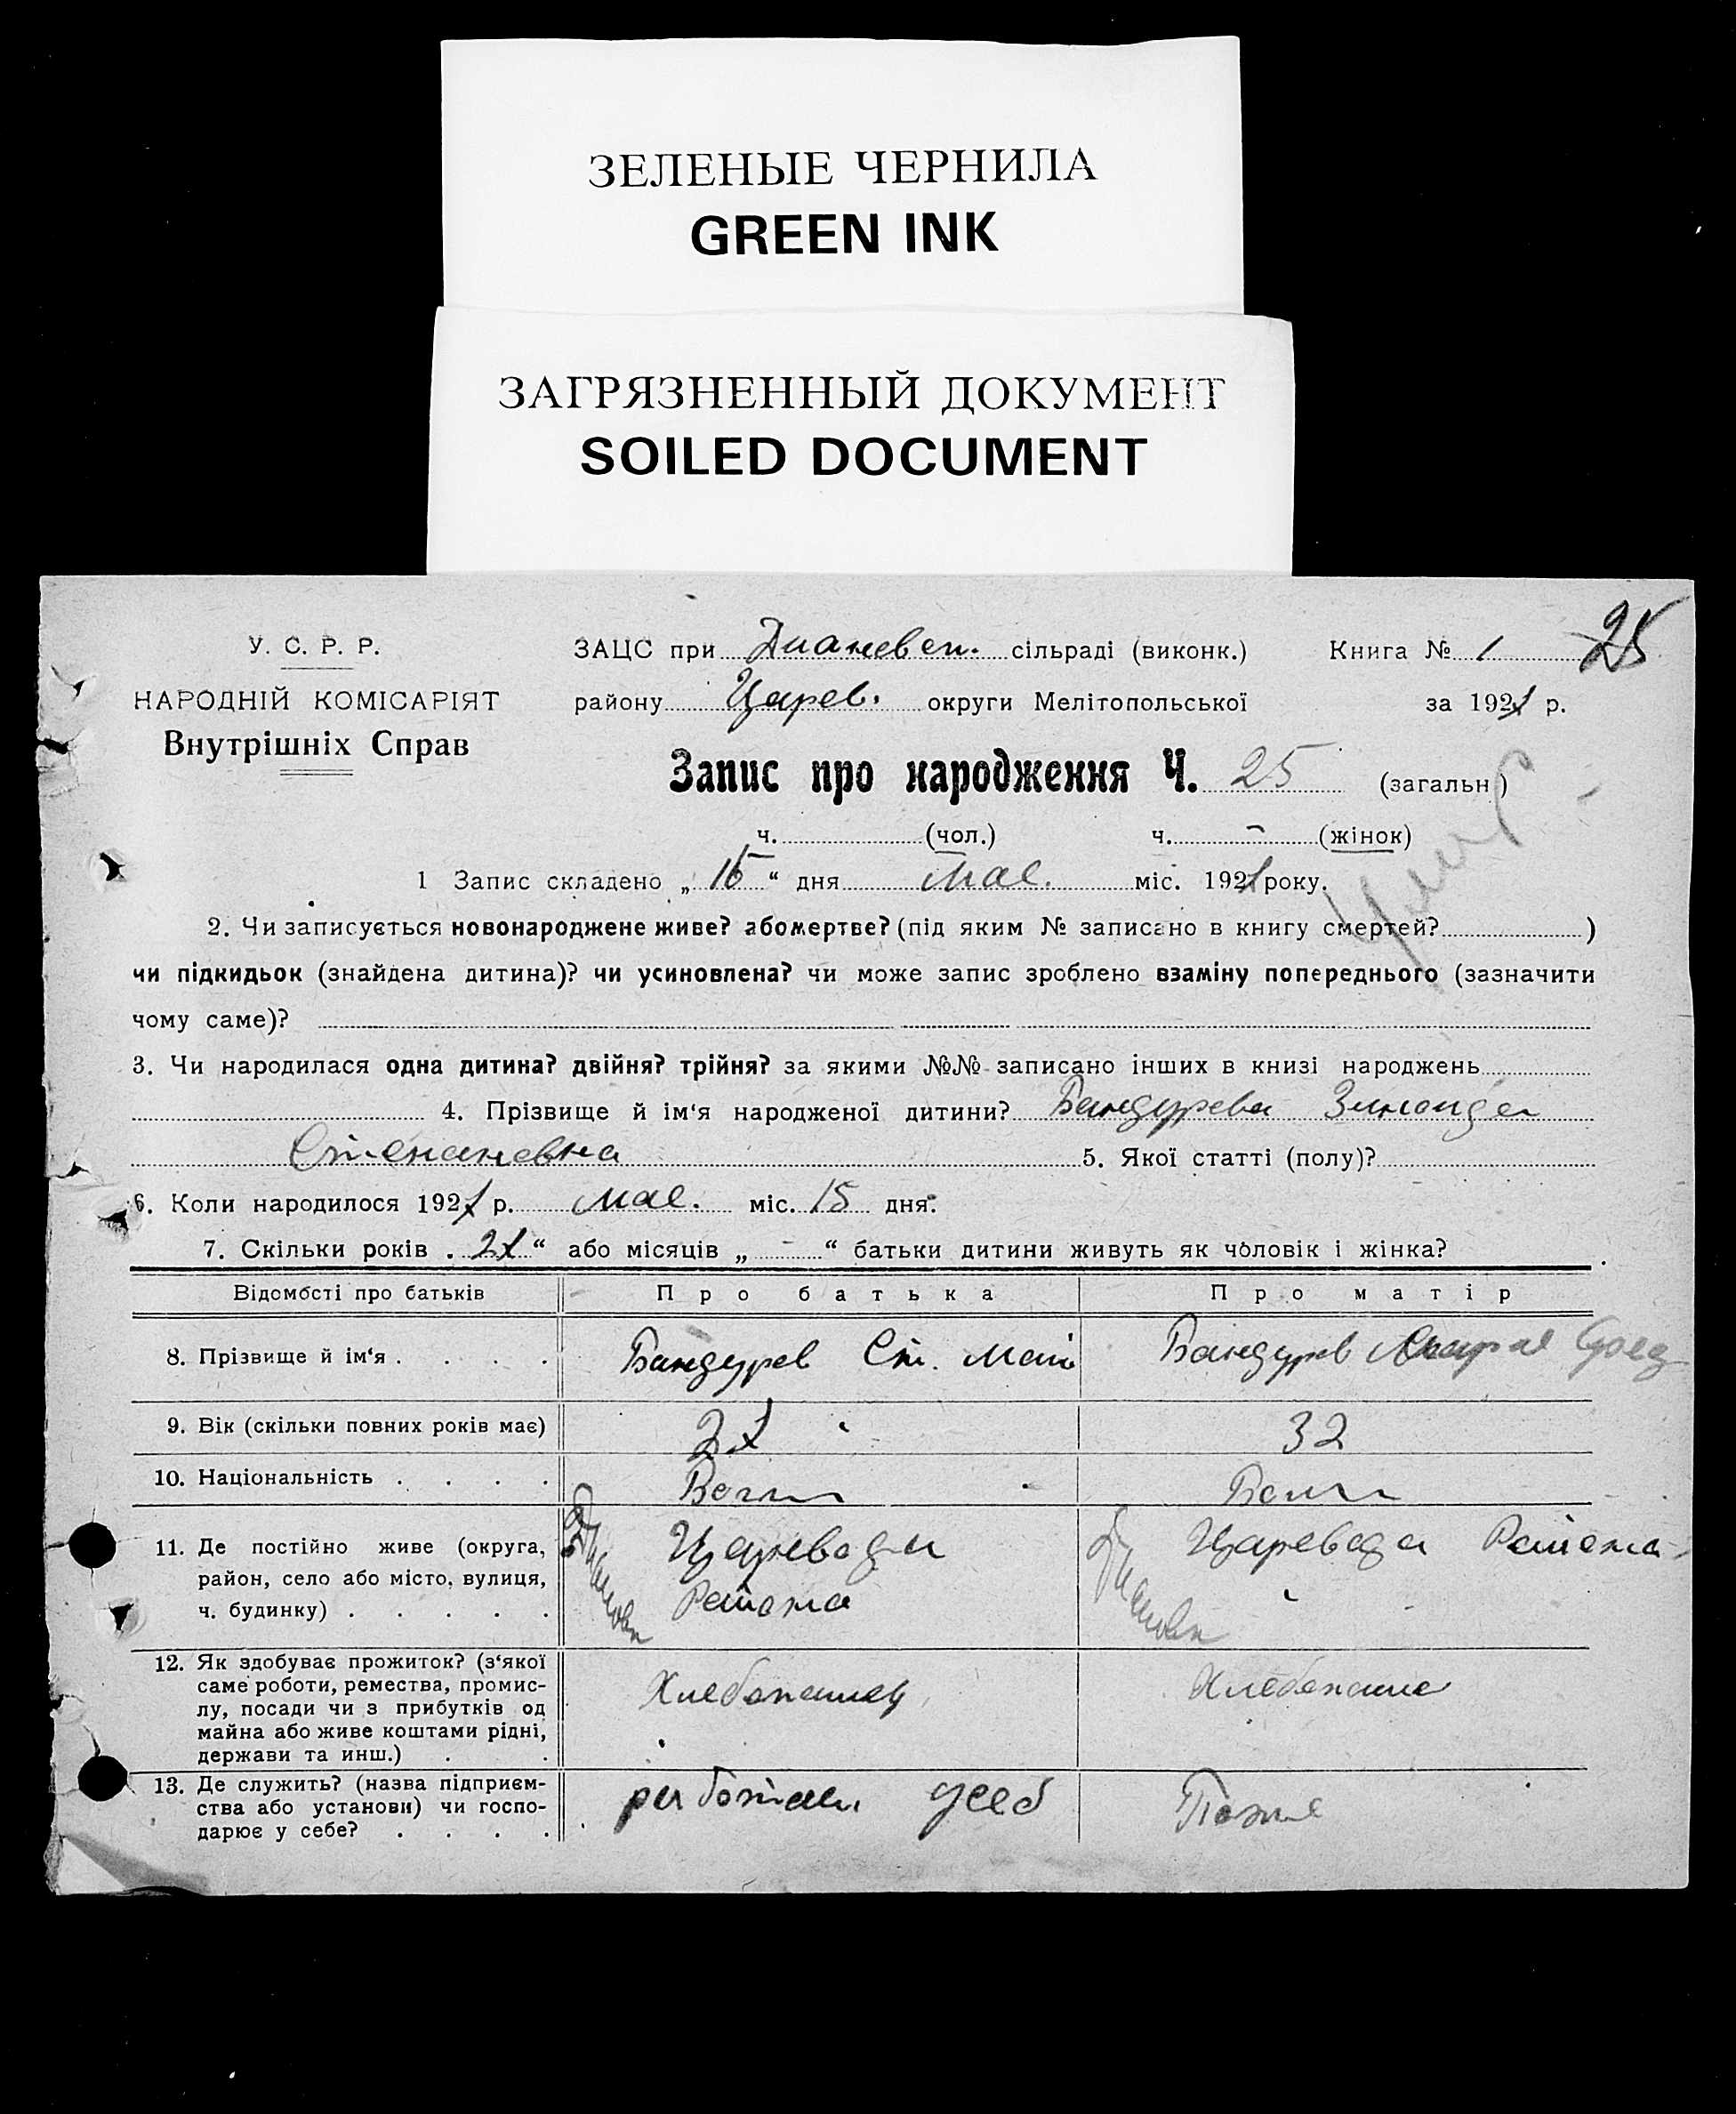 ЗЕЛЕНЫЕ ЧЕРНИЛА
GREEN INK
ЗАГРЯЗНЕННЫЙ ДОКУМЕНТ
SOILED DOCUMENT
У. С. Р. Р.
НАРОДНІЙ КОМІСАРІЯТ
Внутрішніх Справ
ЗАЦС при сільраді (виконк.) Книга № 1 25
району Царев. округи Мелітопольської за 192 р.
Запис про народження Ч. 25 (загальн)
ч. (чол.) ч. – (жінок)
1 Запис складено „ “ дня Мае. міс. 192 року.
2. Чи записується новонароджене живе? або мертве? (під яким № записано в книгу смертей? )
чи підкидьок (знайдена дитина)? чи усиновлена? чи може запис зроблено взаміну попереднього (зазначити
чому саме)?
3. Чи народилася одна дитина? двійня? трійня? за якими №№ записано інших в книзі народжень
4. Прізвище й ім‘я народженої дитини? Бандурева
Степановна 5. Якої статті (полу)?
6. Коли народилося 192 р. мае. міс. 15 дня.
7. Скільки років . “ або місяців „ – “ батьки дитини живуть як чоловік і жінка?
Відомости про батьків Про батька Про матір
8. Прізвище й ім‘я . . . . Бандурев Ст. Бандурев
9. Вік (скільки повних років має) 32
10. Національність . . . .
11. Де постійно живе (округа, Царевода Царевода Района
район, село або місто, вулиця, Района
ч. будинку) . . . . .
12. Як здобуває прожиток? (з‘якої
саме роботи, ремества, промис- Хлебопашец Хлебопаше
лу, посади чи з прибутків од
майна або живе коштами рідні,
держави та инш.) . .
13. Де служить? (назва підприєм-
ства або установи) чи госпо- Тоже
дарює у себе? . . . .